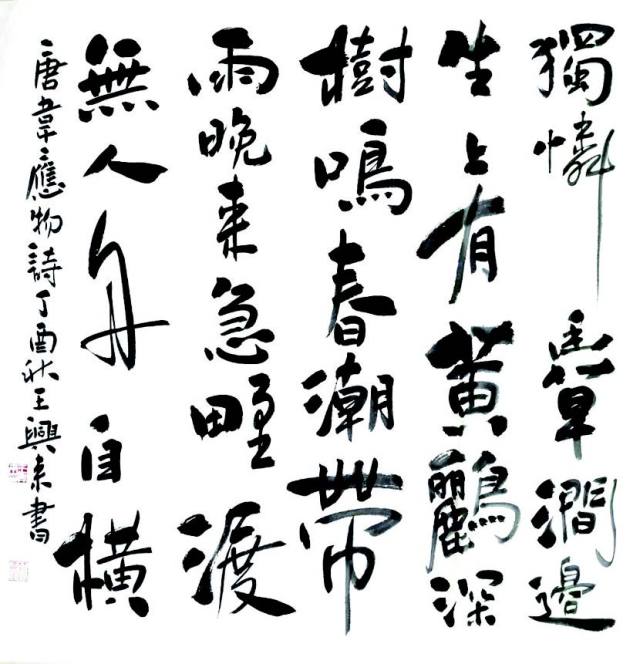 獨憐幽草澗邊
生上有黄鸝深
樹鳴春潮帶
雨晚来急野渡
無人舟自横
唐韋應物詩丁酉秋王興来書